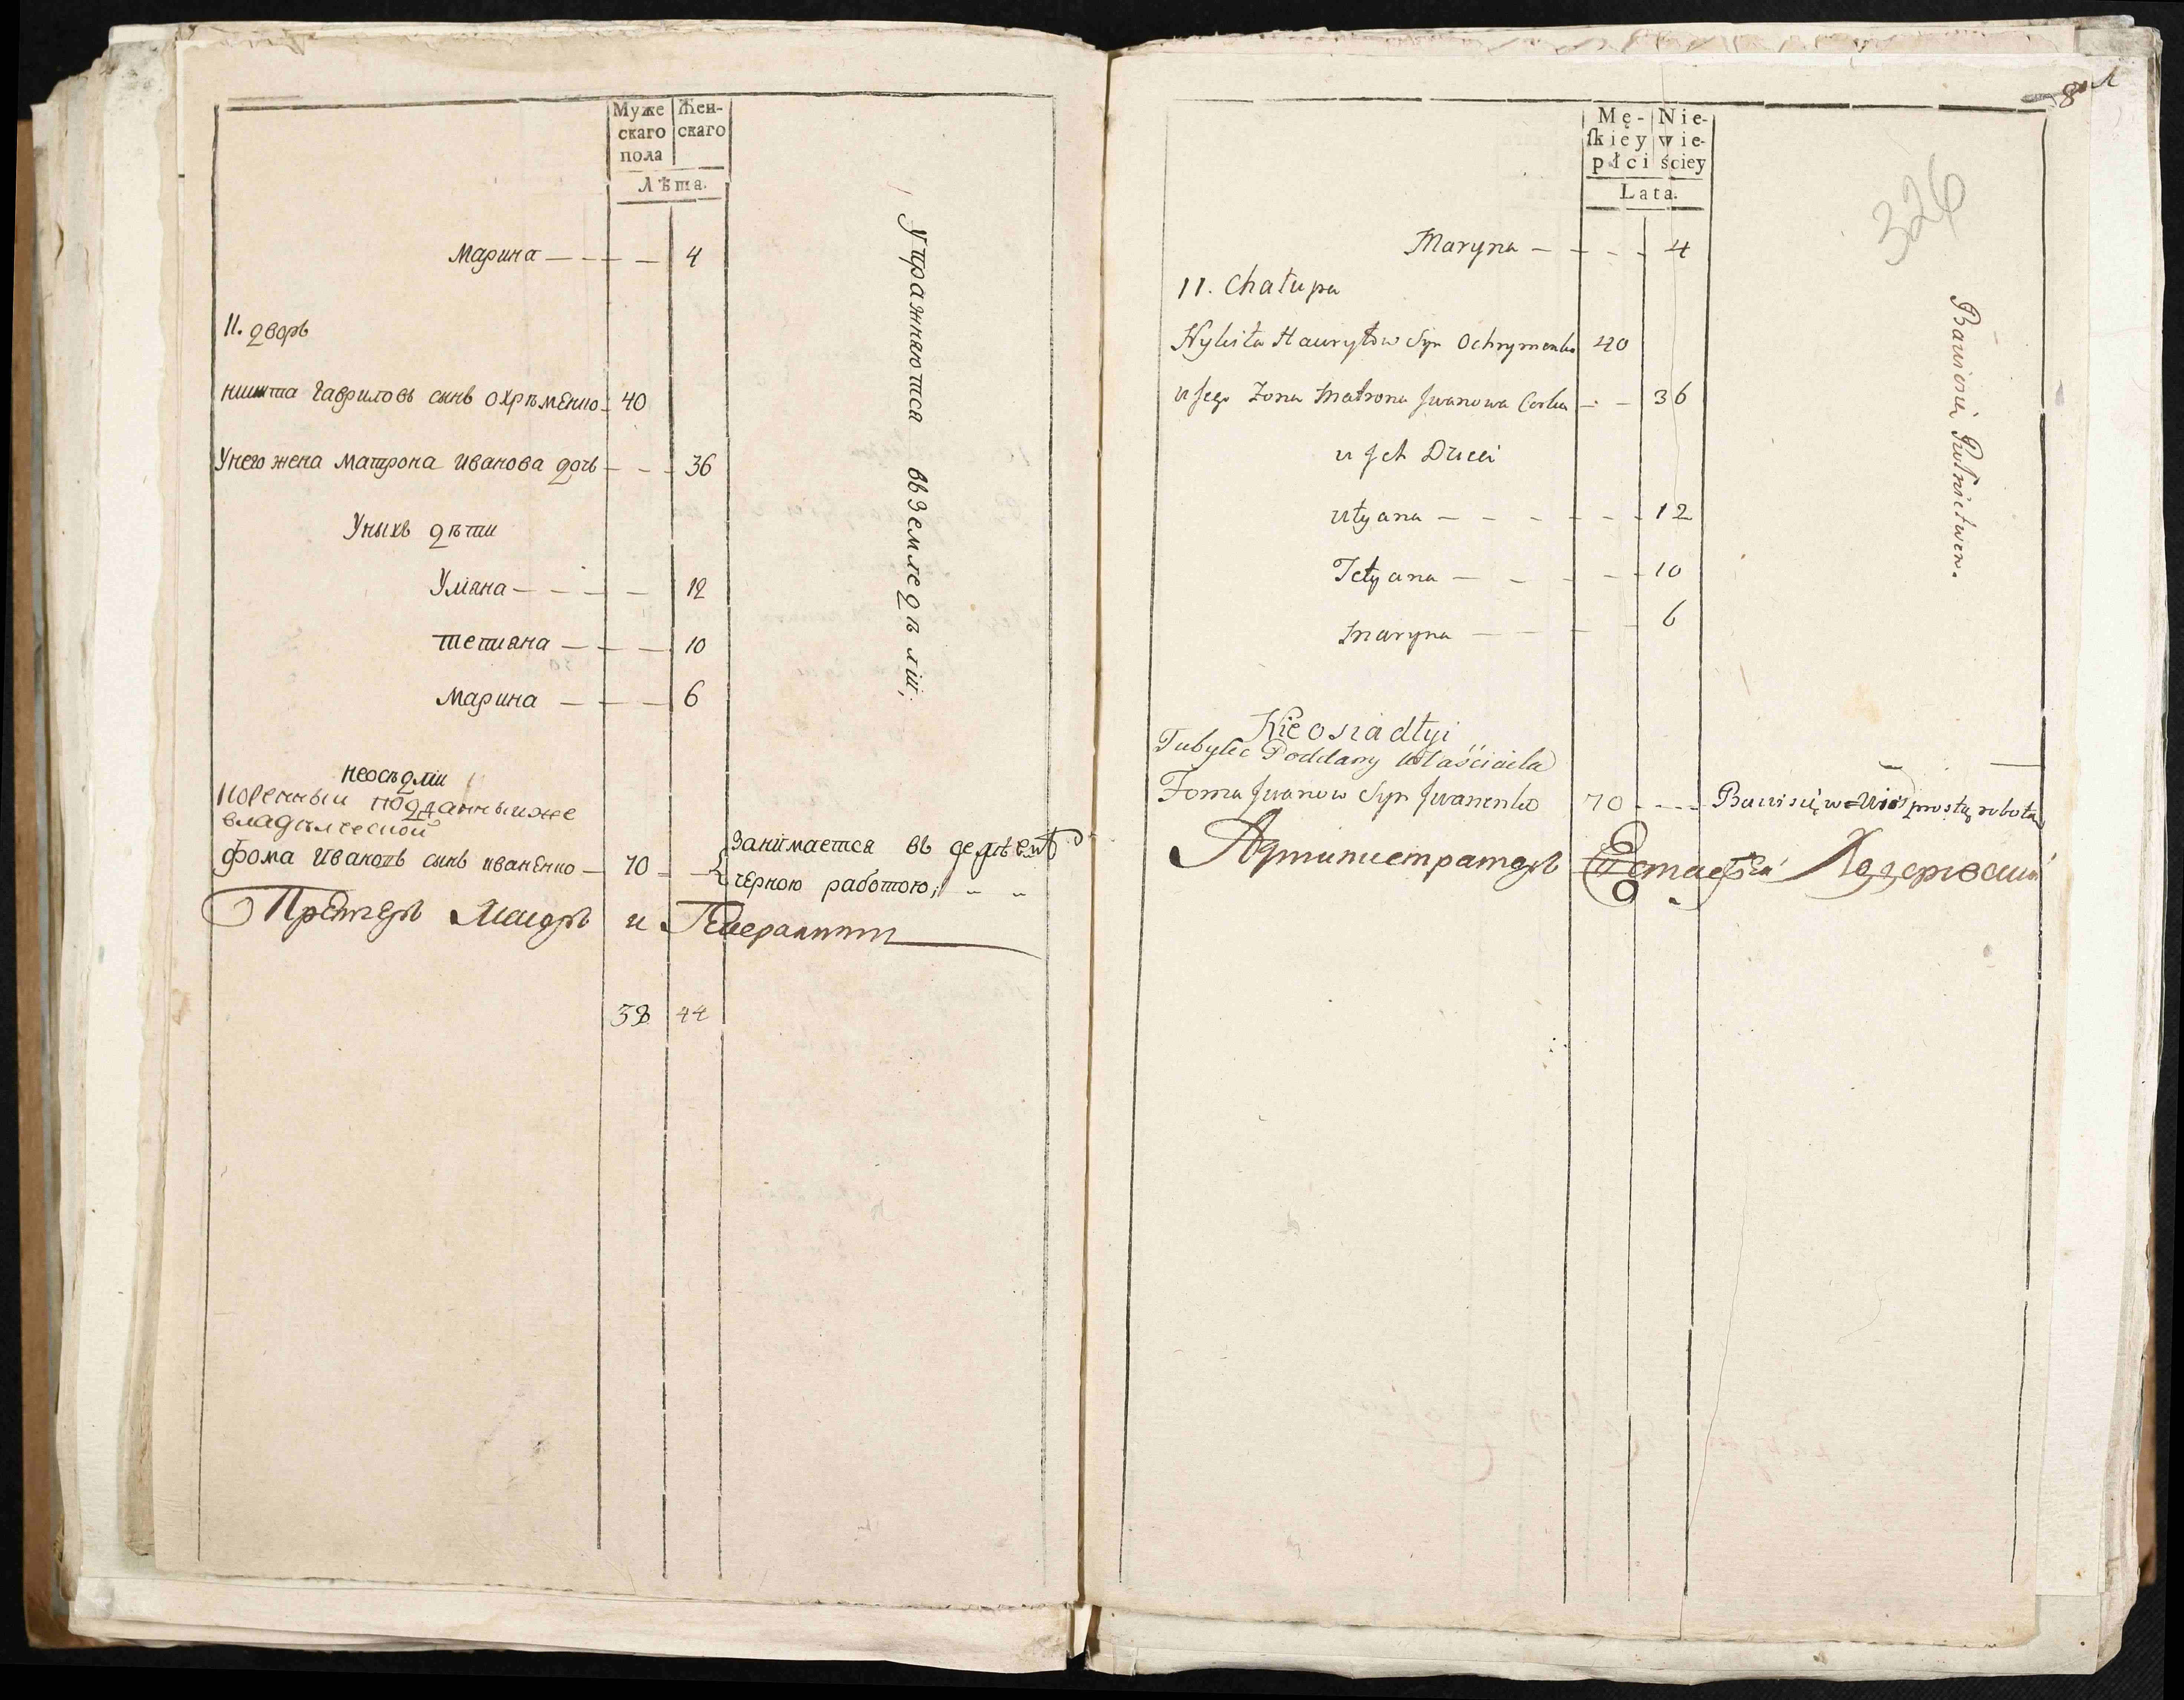 Муже Жен-
скаго скаго
пола
Лѣта.
Марина — — — — 4
11. дворъ
никита Гавриловъ сынъ Охрѣменко — 40
Унего жена Матрона Иванова дочь — — — 36
Уныхъ дѣти
Уляна — — — — 12
тетяна — — — 10
Марина — — — 6
Упражняются въ Земледѣліи,
неосѣдліи
коренныи подданныиже
владѣлческой
Фома Ивановъ сынъ иваненко — 70 — —
Занимается въ
черною работою;
38 44
8
326
Mę- Nie-
ſkiey wie-
płci ściey
Lata.
Maryna — — — — 4
11. Chałupa
Nykita Hauryłow Syn Ochrymenko 40
u Jego Zona Matrona Jwanowa Corka — — 36
u Jch Dzieci
Ulyana — — — — — — 12
Tetyana — — — — 10
Maryna — — — — 6
Bawiąsię Rolnictwem.
Nieosiadłyi
Tubylec Poddany Właściciela
Foma Jwanow Syn Jwanenko 70 - - - - Bawi się w Wsi prostą robotą
Администраторъ